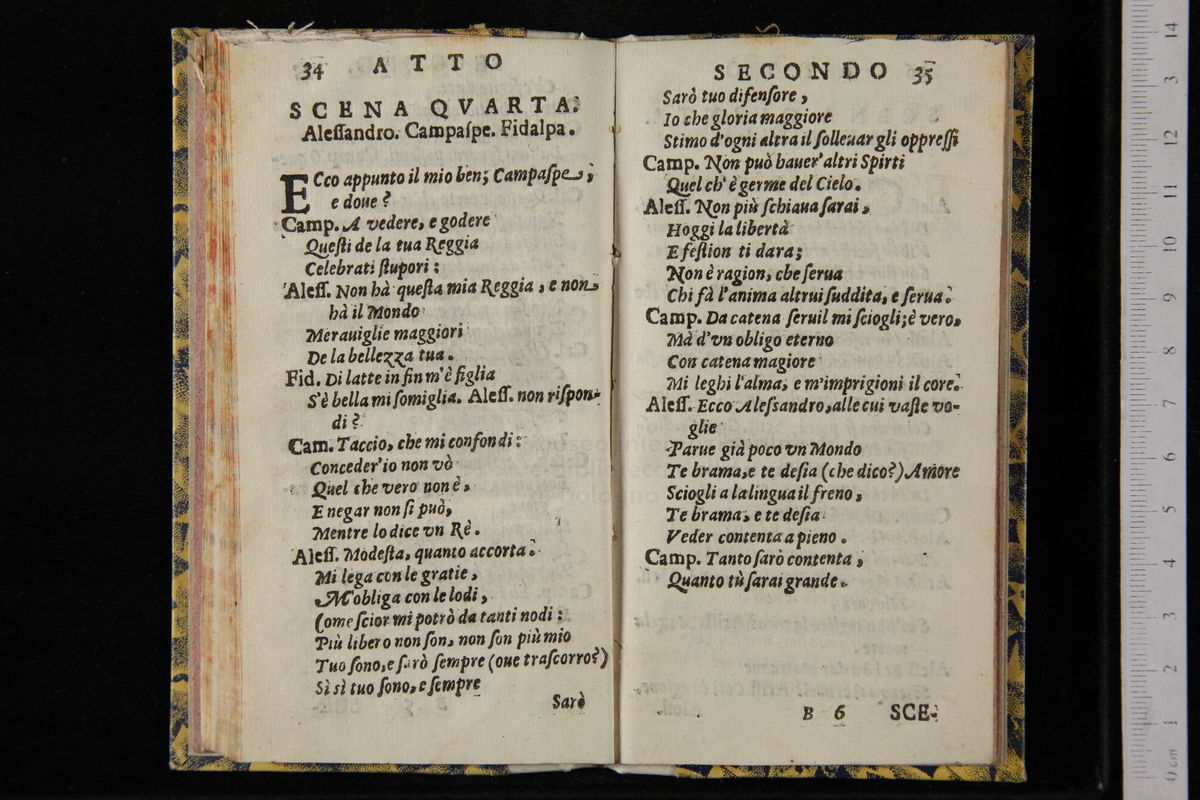 34 ATTO
SCENA QVARTA.
Aleſſandro. Campaſpe. Fidalpa.
ECco appunto il mio ben; Campaſpe,
e doue?
Camp. A vedere, e godere
Queſti de la tua Reggia
Celebrati ſtupori:
Aleſſ. Non hà queſta mia Reggia, e non
hà il Mondo
Merauiglie maggiori
De la bellezza tua.
Fid. Di latte in fin m'è figlia
S'è bella mi ſomiglia. Aleſſ. non riſpon-
di?
Cam. Taccio, che mi confondi:
Conceder'io non vò
Quel che vero non è,
E negar non ſi può,
Mentre lo dice vn Rè.
Aleſſ. Modeſta, quanto accorta.
Mi lega con le gratie,
M'obliga con le lodi,
Come ſcior mi potrò da tanti nodi:
Più libero non ſon, non ſon più mio
Tuo ſono, e ſarò ſempre (oue traſcorro?)
Sì sì tuo ſono, e ſempre
Sarò
SECONDO 35
Sarò tuo difenſore,
Io che gloria maggiore
Stimo d'ogni altra il ſolleuar gli oppreſſi
Camp. Non può hauer' altri Spirti
Quel ch' è germe del Cielo.
Aleſſ. Non più ſchiaua ſarai,
Hoggi la libertà
Efeſtion ti dara;
Non è ragion, che ſerua
Chi fà l'anima altrui ſuddita, e ſerua.
Camp. Da catena ſeruil mi ſciogli; è vero,
Mà d'vn obligo eterno
Con catena magiore
Mi leghi l'alma, e m'imprigioni il core.
Aleſſ. Ecco Aleſsandro, alle cui vaſte vo-
glie
Parue già poco vn Mondo
Te brama, e te deſia (che dico?) Amore
Sciogli a la lingua il freno,
Te brama, e te deſia
Veder contenta a pieno.
Camp. Tanto ſarò contenta,
Quanto tù ſarai grande.
B 6 SCE-